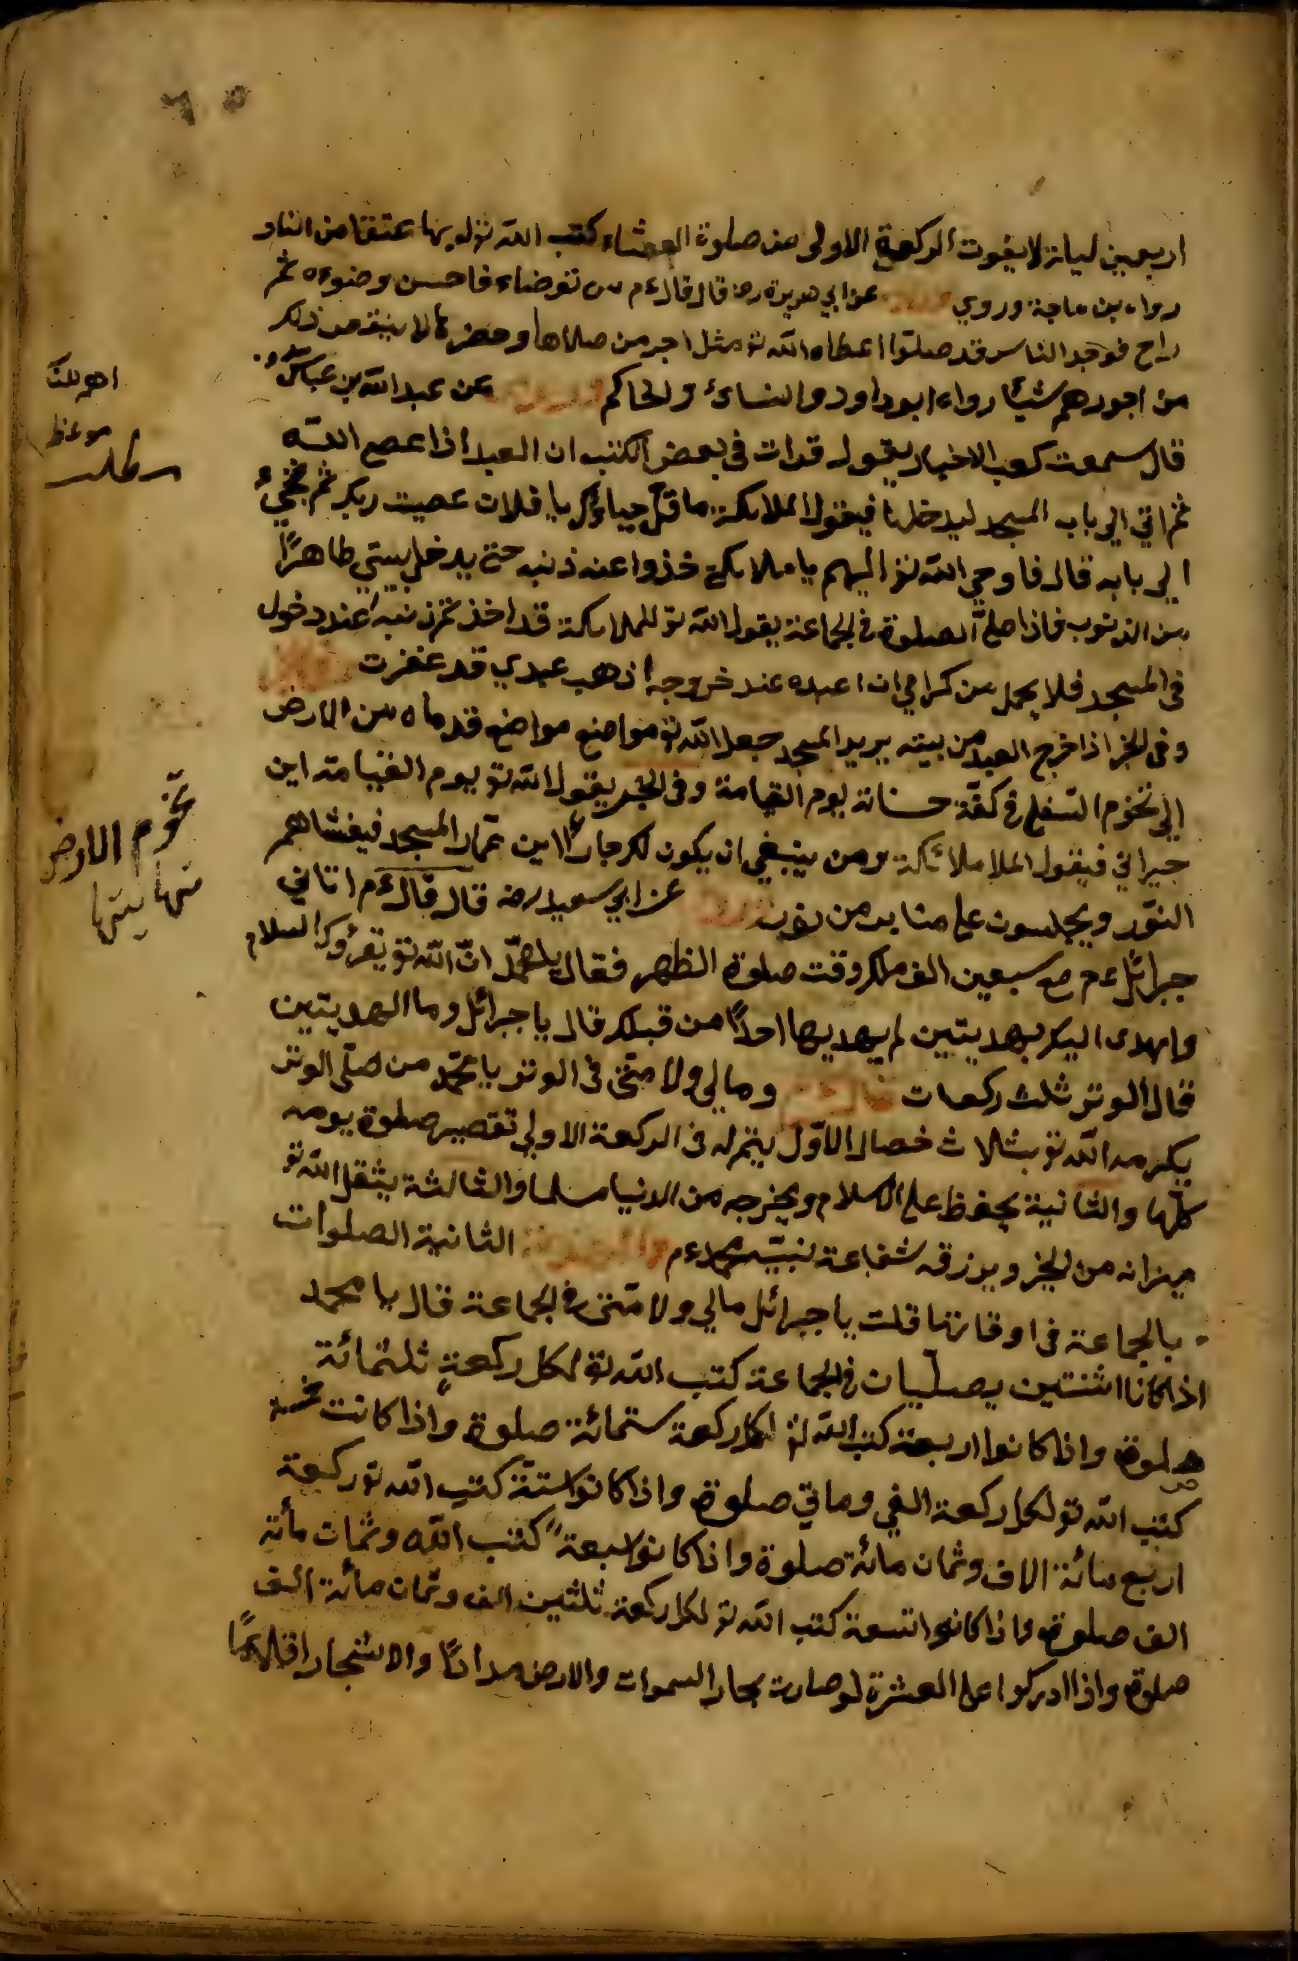 ٦٥
اربعين ليلة لايفوت الركعة الاولى من صلوة العشاء كتب الله تؤ له بها عتقا من النار
رواه بن ماجة وروي عن ابي هريرة رضه قال قال ءم من توضاء فاحسن وضوءه ثم
راح فوجد الناس قد صلوا اعطاه الله تؤ مثل اجر من صلاها وحضرها لا ينقص ذلك
من اجورهم شيئا رواه ابوداود والنسائ والحاكم عن عبد الله بن عباس
قال سمعت كعب الاخبار يقول قرات في بعض الكتب ان العبد اذا عصى الله
ثم اتي الي باب المسجد ليدخلها فيقول الملائكة ما قل حياؤك يا فلان عصيت ربك ثم تجيء
الي بابه قال فاوحي الله تؤ اليهم يا ملائكتي خذوا عنه ذنبه حتى يدخل بيتي طاهرًا
من الذنوب فاذا صلى الصلوة في الجماعة يقول الله تؤ للملائكة قد اخذتم ذنبه عند دخول
في المسجد فلا يحمل من كرامي ان اعيده عند خروجه اذهب عبدي قد غفرت
وفي الخبر اذا خرج العبد من بيته يريد المسجد جعل الله تؤ مواضع مواضع قدماه من الارض
الي تخوم السفلي في كفّة حسناته يوم القيامة وفي الخبر يقول الله تؤ يوم القيامة اين
جيراني فيقول الملا ملائكة ومن ينبغي ان يكون لك جارًا اين عمّار المسجد فيغشاهم
النوّر ويجلسون على منابر من نور عن ابي سعيد رضه قال قال ءم اتاني
جبرائل ءم مع سبعين الف ملك وقت صلوة الظهر فقال يا محمّد انّ الله تؤ يقرؤك السلام
واهدى اليك بهديتين لم يهديها احدًا من قبلك قال يا جبرائل وما الهديتين
قال الوتر ثلث ركعات وما لي ولامتي في الوتر يا محمّد من صلّى الوتر
يكرمه الله تؤ بثلاث خصال الاوّل يتم له في الركعة الاولي تقصير صلوة يومه
كلّها والثانية يحفظ على الاسلام ويخرجه من الدنيا مسلما والثالثة يثقل الله تؤ
ميزانه من الخير ويرزقه شفاعة نبيّه محمد ءم الثانية الصلوات
بالجماعة في اوقاتها قلت يا جبرائل مالي ولامتي في الجماعة قال يا محمد
اذا كانا اثنتين يصليان في الجماعة كتب الله تؤ لكل ركعة ثلثمائة
صلوة واذا كانوا اربعة كتب الله تؤ لكل ركعة ستمائة صلوة واذا كانت خمسة
كتب الله تؤ لكل ركعة الفي وماتي صلوة واذا كانوا ستة كتب الله تؤ ركعة
اربع مائة الاف وثمان مائة صلوة واذا كانوا سبعة كتب الله وثمان مأئة
الف صلوة واذا كانوا تسعة كتب الله تؤ لكل ركعة ثلثين الف وثمان مأئة الف
صلوة واذا ادركوا على العشرة لو صارت بحار السموات والارض مدادًا والاشجار اقلامًا
مطلب
تخوم الارض
نهايتها